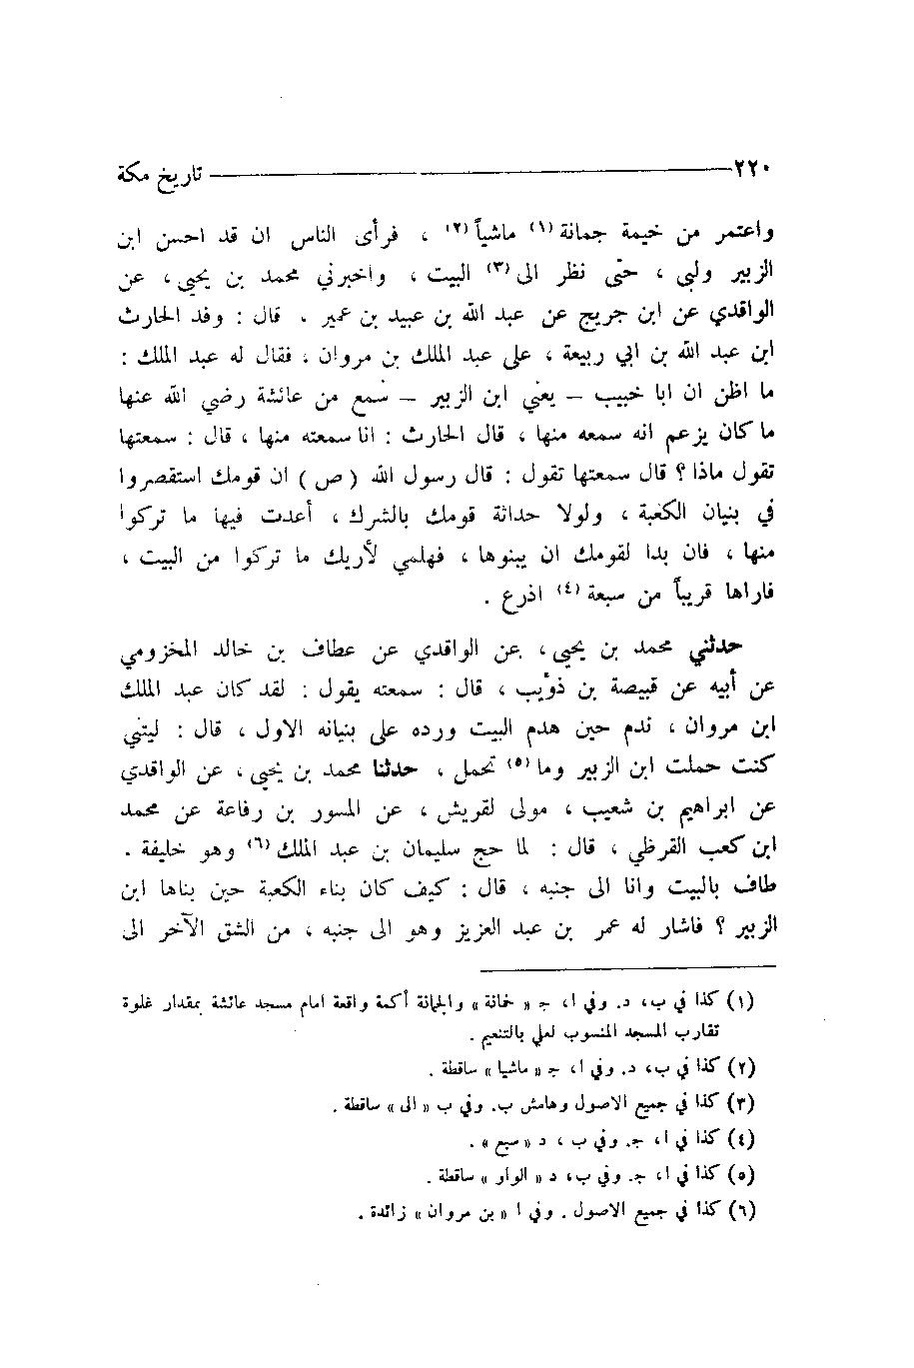 ٢٢٠ تاريخ مكة
واعتمر من خيمة جمانة (١) ماشياً (٢) ، فرأى الناس ان قد احسن ابن
الزبير ولبى ، حتى نظر الى (٣) البيت ، واخبرني محمد بن يحيى ، عن
الواقدي عن ابن جريج عن عبد الله بن عبيد بن عمير . قال : وفد الحارث
ابن عبد الله بن ابي ربيعة ، على عبد الملك بن مروان ، فقال له عبد الملك :
ما اظن ان ابا خبيب – يعني ابن الزبير – سمع من عائشة رضي الله عنها
ما كان يزعم انه سمعه منها ، قال الحارث : انا سمعته منها ، قال : سمعتها
تقول ماذا ؟ قال سمعتها تقول : قال رسول الله ( ص ) ان قومك استقصروا
في بنيان الكعبة ، ولولا حداثة قومك بالشرك ، أعدت فيها ما تركوا
منها ، فان بدا لقومك ان يبنوها ، فهلمي لأريك ما تركوا من البيت ،
فاراها قريباً من سبعة (٤) اذرع .
حدثني محمد بن يحيى ، عن الواقدي عن عطاف بن خالد المخزومي
عن أبيه عن قبيصة بن ذؤيب ، قال : سمعته يقول : لقد كان عبد الملك
ابن مروان ، ندم حين هدم البيت ورده على بنيانه الاول ، قال : ليتني
كنت حملت ابن الزبير وما (٥) تحمل ، حدثنا محمد بن يحيى ، عن الواقدي
عن ابراهيم بن شعيب ، مولى لقريش ، عن المسور بن رفاعة عن محمد
ابن كعب القرظي ، قال : لما حج سليمان بن عبد الملك (٦) وهو خليفة .
طاف بالبيت وانا الى جنبه ، قال : كيف كان بناء الكعبة حين بناها ابن
الزبير ؟ فاشار له عمر بن عبد العزيز وهو الى جنبه ، من الشق الآخر الى
(١) كذا في ب، د. وفي ا، ج « خمانة » والجمانة أكمة واقعة امام مسجد عائشة بمقدار غلوة
تقارب المسجد المنسوب لعلي بالتنعيم .
(٢) كذا في ب، د. وفي ا، ج « ماشيا » ساقطة .
(٣) كذا في جميع الاصول وهامش ب. وفي ب « الى » ساقطة .
(٤) كذا في ا، ج. وفي ب ، د « سبع » .
(٥) كذا في ا، ج. وفي ب، د « الواو » ساقطة .
(٦) كذا في جميع الاصول . وفي ا « بن مروان » زائدة .